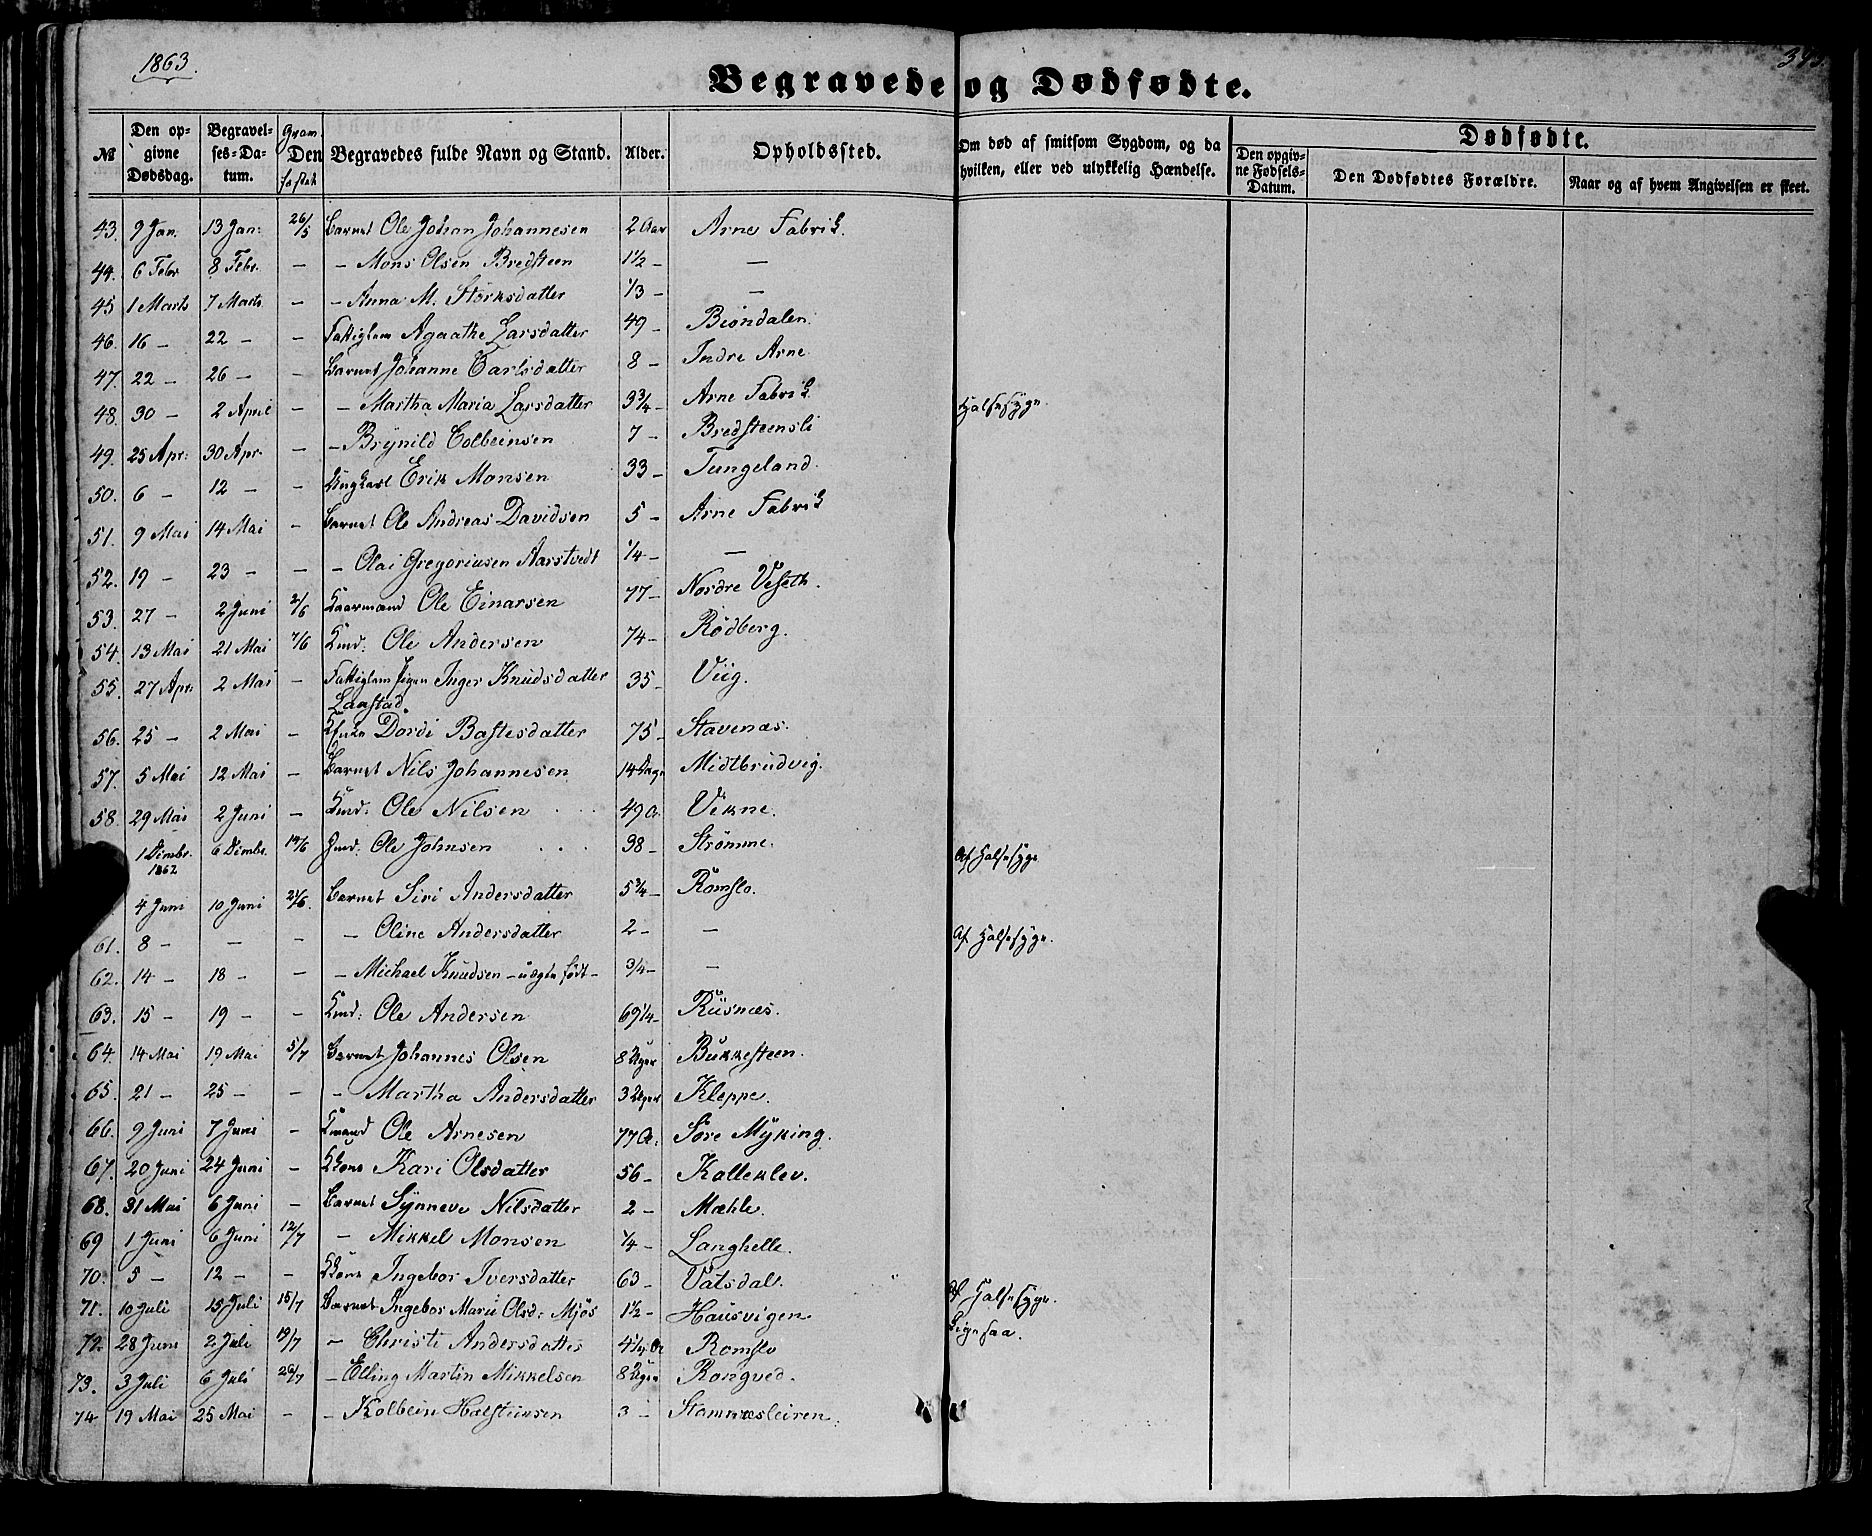 1863.
Begravede og Dødfødte.
№
Den opgivne Dødsdag.
Begravelses-Datum.
Den
Begravedes fulde Navn og Stand.
Alder.
Opholdssted.
Om død af smitsom Sygdom, og da hvilken, eller ved ulykkelig Hændelse.
Dødfødte.
Den opgivne Fødsels-Datum.
Den Dødfødtes Forældre.
Naar og af hvem Angivelsen er skeet.
43. 9 Jan. 13 Jan: 26/5 Barnet Ole Johan Johannesen 2 Aar Arne Fabrik.
44. 6 Febr 8 Febr. – – Mons Olsen Bredsteen 1½ – –
45 1 Marts 7 Marts – – Anna M. Storksdatter 1/3 – –
46. 16 – 22 – – Fattiglem Agaathe Larsdatter 49 – Biøndalen.
47. 22 – 26 – – Barnet Johanne Carlsdatter 8 – Indre Arne
48. 30 – 2 April – – Martha Maria Larsdatter 3¾ – Arne Fabrik Halsesyge.
49. 25 Apr: 30 Apr. – – Brynild Colbeinsen 7 – Bredsteensli
50. 6 – 12 – – Ungkarl Erik Monsen 33 – Tungeland.
51. 9 Mai 14 Mai – Barnet Ole Andreas Davidsen 5 – Arne Fabrik
52. 19 – 23 – – – Olai Gregoriusen Aarstvedt ¼ – –
53. 27 – 2 Juni 2/6 Kaarmand Ole Einarsen 77 – Nordre Veseth.
54. 13 Mai 21 Mai 7/6 Kmd: Ole Andersen 74 – Rödberg.
55. 27 Apr: 2 Mai – Fattiglem Pigen Inger Knudsdatter 35 – Viig.
Laastad.
56. 25 – 2 Mai – Dordi Bastesdatter 75 – Stavenæs.
57. 5 Mai 12 Mai – Barnet Nils Johannesen 14 Dage Midtbrudvig.
58. 29 Mai 2 Juni – Kmd: Ole Nilsen 49 A. Vikne.
1 Dcmbr. 1862 6 Dcmbr. 14/6 Gmd: Ole Johnsen 38 – Strømme. Af Halsesyge
4 Juni 10 Juni 21/6. Barnet Siri Andersdatter 5¾ – Romslo.
61. 8 – – – – Oline Andersdatter 2 – – Af Halsesyge.
62. 14 – 18 – – – Michael Knudsen – uægte født – ¾ – –
63. 15 – 19 – – Kmd: Ole Andersen 69¼ – Riisnæs.
64. 14 Mai 19 Mai 5/7 Barnet Johannes Olsen 8 Uger Bukkesteen.
65. 21 – 25 – – – Martha Andersdatter 3 Uger Kleppe.
66. 9 Juni 7 Juni – Kmand Ole Arnesen 77 A. Søre Myking.
67. 20 Juni 24 Juni – Kone Kari Olsdatter 56 – Kalleklev.
68. 31 Mai 6 Juni – Barnet Synneve Nilsdatter 2 – Mæhle.
69 1 Juni 6 Juni 12/7 – Mikkel Monsen ¼ – Langhelle.
70. 5 – 12 – – Kone Ingebor Iversdatter 63 – Vatsdal.
71. 10 Juli 15 Juli 15/7 Barnet Ingebor Marie Olsd: Mjøs 1½ – Hausvigen Af Halsesyge.
72. 28 Juni 2 Juli 19/7 – Christi Andersdatter 4¼ A Romslo Ligesaa.
73. 3 Juli 6 Juli 26/7 – Elling Martin Mikkelsen 8 Uger Rongved.
74. 19 Mai 25 Mai – – Kolbein Halsteinsen 3 – Stamnæsleiren.